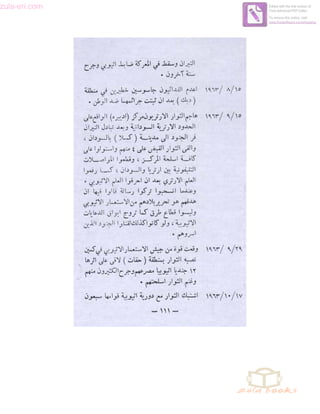 zula-eri.com
النيران وسقط في المعركة ضابط اثيوبي وجرح
ستة آخرون .
١٩٦٣ / ٨ / ١٥ اعدم الفدائيون جاسوسين خطيرين في منطقة
( دبك ) بعد ان ثبتت جرائمهما ضد الوطن .
١٩٦٣ / ٩ / ١٥ هاجم الثوار الارتريون مركز ( اديبره ) الواقع على
الحدود الارترية السودانية وبعد تبادل النيران
فر الجنود الى مدينة ( كسلا ) بالسودان ،
والقى الثوار القبض على ٤ منهم واستولوا على
كافة اسلحة المركز ، وقطعوا المواصلات
التليفونية بين ارتريا والسودان ، كما رفعوا
العلم الارتري بعد ان احرقوا العلم الاثيوبي .
وعندما انسحبوا تركوا رسالة قالوا فيها ان
هدفهم هو تحرير بلادهم من الاستعمار الاثيوبي
وليسوا قطاع طرق كما تروج ابواق الدعايات
الاثيوبية ، ولو كانوا كذلك لقتلوا الجنود الذين
اسروهم .
١٩٦٣ / ٩ / ٢٩ وقعت قوة من جيش الاستعمار الاثيوبي في كمين
نصبه الثوار بمنطقة ( حقات ) لاقى على اثرها
١٢ جنديا اثيوبيا مصرعهم وجرح الكثيرون منهم
وغنم الثوار اسلحتهم .
١٩٦٣/١٠/١٧ اشتبك الثوار مع دورية اثيوبية قوامها سبعون
— ١١١ —